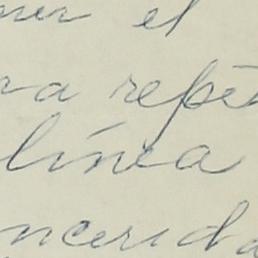 ner el
ra repé
línea
ncerida